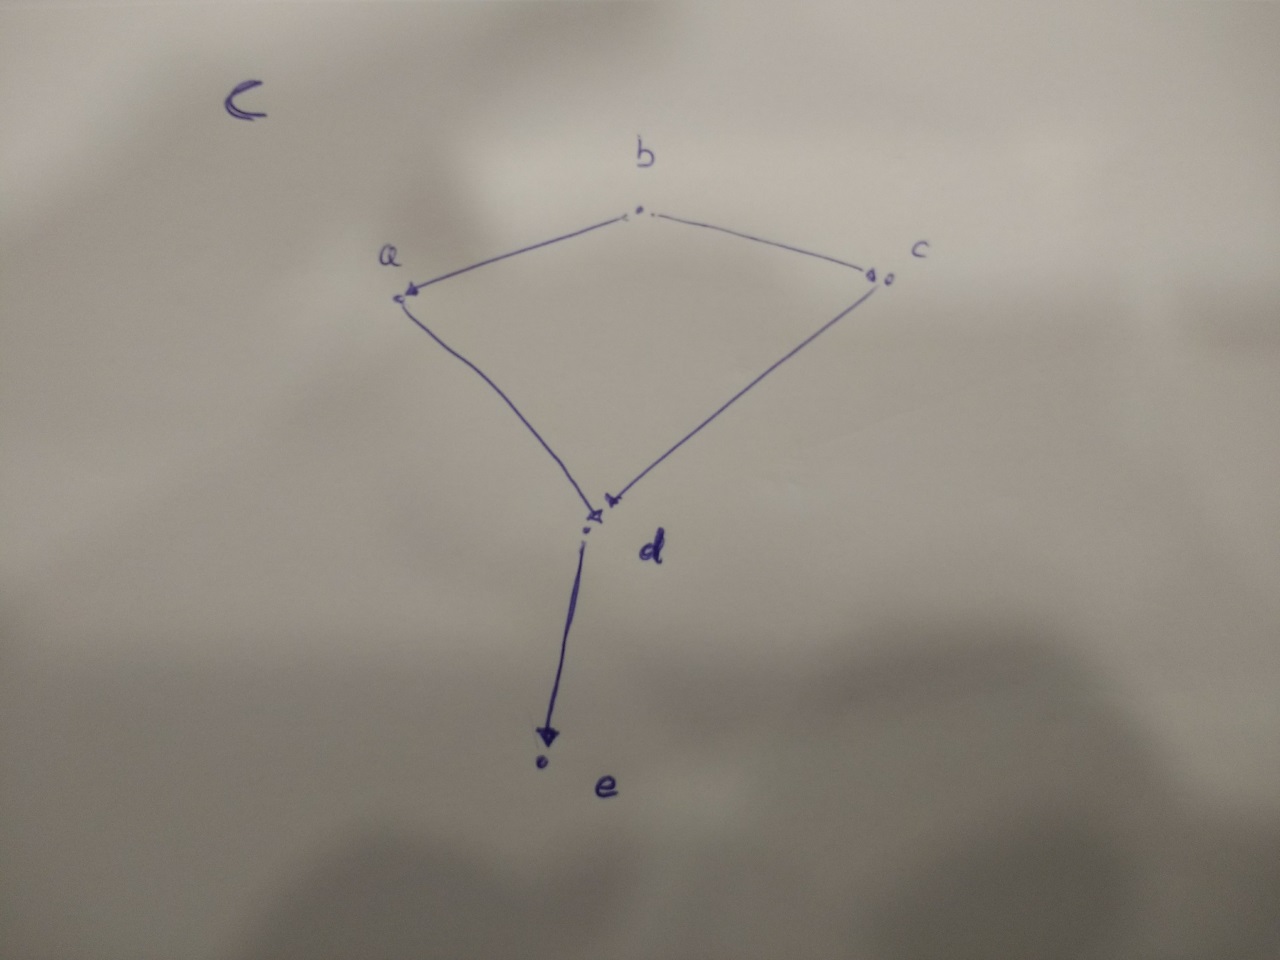 C
b
a
c
d
e